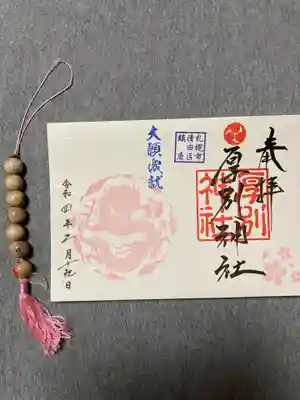 奉拝
厚別神社
厚別神社
札幌市
清田区
鎮座
大願成就
令和四年五月十九日